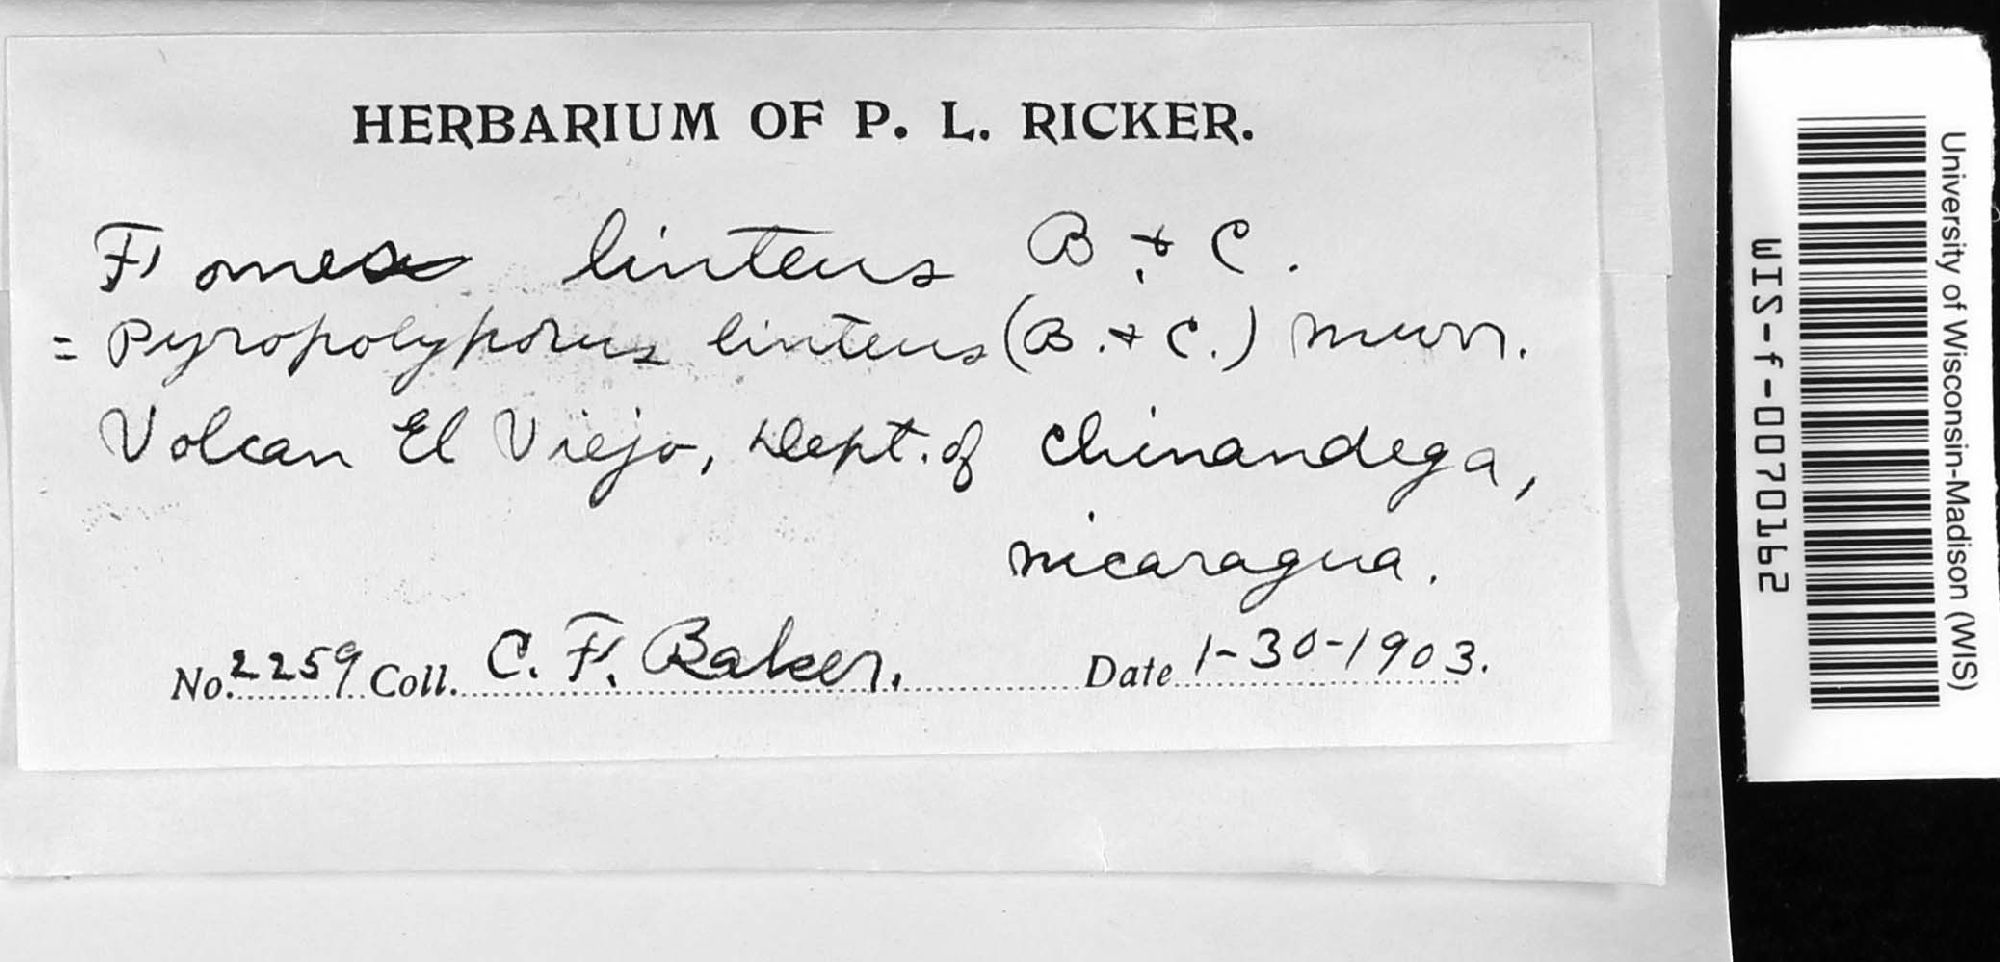 HERBARIUM OF P. L. RICKER.
Fomes linteus B. & C.
= Pyropolyporus linteus (B. & C.) Murr.
Volcan El Viejo, Dept. of Chinandega,
Nicaragua.
No. 2259 Coll. C. F. Baker. Date 1-30-1903.
University of Wisconsin-Madison (WIS)
WIS-f-0070162